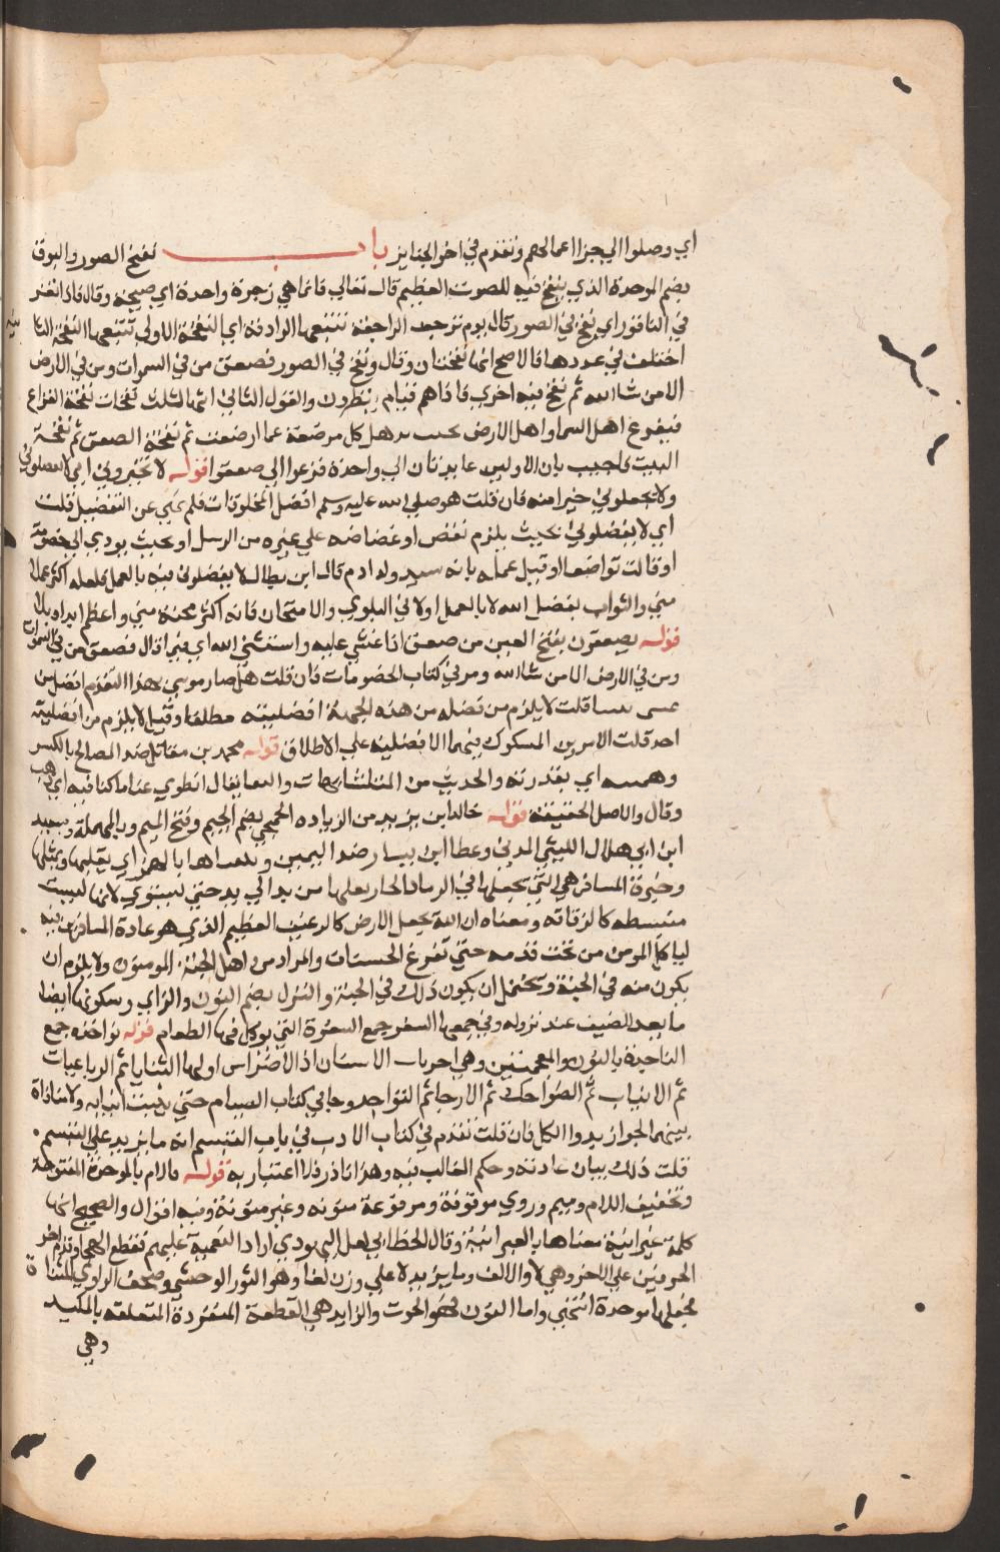 اي وصلوا الي جزا اعمالهم وتقدم في اخر الجنايز باب نفخ الصور والبوق
بضم الموحدة الذي ينفخ فيه للصوت العظيم قال تعالي فانما هي زجرة واحدة اي صيحة وقال فاذا نقر
في الناقور اي نفخ في الصور قال يوم ترجف الراجفة تتبعها الرادفة اي النفخة الاولي تتبعها النفخة الثا نية
اختلف في عددها فالاصح انها نفختان وقال ونفخ في الصور فصعق من في السموات ومن في الارض
الا من شا الله ثم نفخ فيه اخري فاذاهم قيام ينظرون والقول الثاني انها ثلث نفخات نفخة الفزاع
فيفزع اهل السما واهل الارض بحيث تذهل كل مرضعة عما ارضعت ثم نفخة الصعق ثم نفخة
البعث فاجيب بان الاوليين عايدتان الي واحدة فزعوا الي صعقوا قوله لا تخيروني اي لا تفضلوني
ولا تجعلوني خيرا منه فان قلت هو صلي الله عليه وسلم افضل المخلوقات فلم نهي عن التفضيل قلت
اي لا تفضلوني بحيث يلزم نقص او غضاضة علي غيره من الرسل او بحيث يودي الي خصومة
او قالت تواضعا او قبل عمله بانه سيد ولد ادم قال ابن بطال لا يفضلوني فيه بالعمل فلعله اكثر عملا
مني والثواب بفضل الله لا بالعمل اولا في البلوي والامتحان فانه اكثر محنة مني واعظم ايذا وبلا
قوله يصعقون بفتح العين من صعق اذا غشي عليه واستثني الله اي فيما قال فصعق من في السموات
ومن في الارض الا من شا الله ومر في كتاب الخصومات فان قلت هل صار موسي بهذا التقدم افضل من
قلت لا يلزم من فضله من هذه الجهة افضليته مطلقا وقيل لا يلزم من افضلية
احد قلت الامرين المسكوك فيهما الافضلية علي الاطلاق قوله محمد بن مقاتل ضد المصالح بالكسر
اي بقدرته والحديث من المتشابهات يقال انطوي عنا ما كنا فيه اي ذهب
وقال والاصل الحقيقة قوله خالد ابن يزيد من الزيادة الجمحي بضم الجيم وفتح الميم وبالمهملة وسعيد
ابن ابي هلال الليثي المدني وعطا ابن يسار ضد اليمين بالهمز اي يقلبها ويميلها
وخبزة المسافر هي التي يجعلها في الرماد الحار يقلبها من يد الي يد حتي تستوي لانها ليست
منبسطه كالرقاقه ومعناه ان الله يجعل الارض كالرغيف العظيم الذي هو عادة المسافرين فيه
لياكل المومن من تحت قدمه حتي تفرغ الحسنات والمراد من اهل الجنة المومنون ولا يلزم ان
يكون منه في الجنة ويحتمل ان يكون ذلك في الجنة والنزل بضم النون والزاي وسكونها ايضا
ما يعد الضيف عند نزوله وفي جمعها السفر جمع السفرة التي يوكل فيها الطعام قوله نواجذه جمع
الناجذة بالنون والمعجمتين وهي اخريات الاسنان اذ الاضراس اولها الثنايا ثم الرباعيات
ثم الانياب ثم الضواحك ثم الارحا ثم النواجد وجا في كتاب الصيام حتي بدت انيابه ولا منافاة
بينهما لجواز يدوا الكل فان قلت تقدم في كتاب الادب في باب التبسم انه ما يزيد علي التبسم
قلت ذلك بيان عادته وحكم الغالب فيه وهذا نادر فلا اعتبار به قوله بالام بالموحدة المفتوحة
وتخفيف اللام وميم وروي موقوفة ومرفوعة منونة وغير منونة وفيه اقوال والصحيح انها
كلمة عبرانية معناها بالعبرانية وقال الخطابي لعل اليهودي اراد التعمية عليهم فقطع الهجا وقدم احد
الحرفين علي الاخر وهي لا والالف وما يريد لا علي وزن لعا وهو الثور الوحشي وصحف الراوي المثناة
فجعلها موحدة انتهي واما النون فهو الحوت والزايد هي القطعة المنفردة المتعلقه بالكبد
وهي